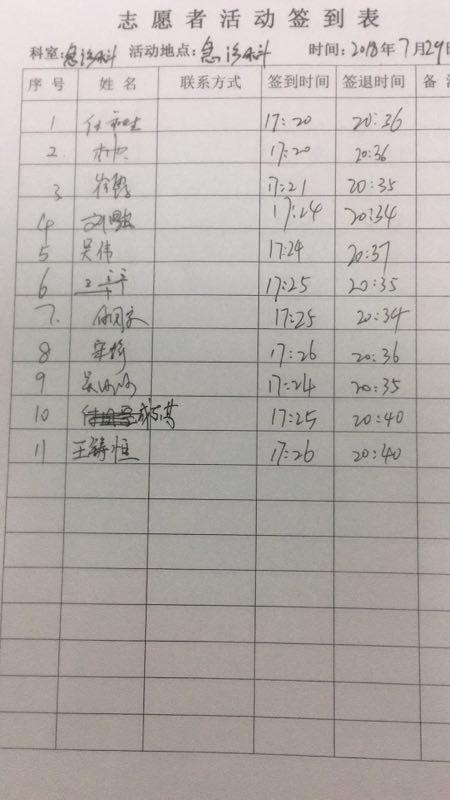 志愿者活动签到表
科室:急诊科 活动地点:急诊科 时间:2018年7月29日
序号 姓名 联系方式 签到时间 签退时间 备
1 17:20 20:36
2 17:20 20:36
3 17:21 20:35
4 刘 17:24 20:34
5 吴伟 17:24 20:37
6 17:25 20:35
7. 17:25 20:34
8 宋 17:26 20:36
9 吴 17:24 20:35
10 17:25 20:40
11 王铸恒 17:26 20:40